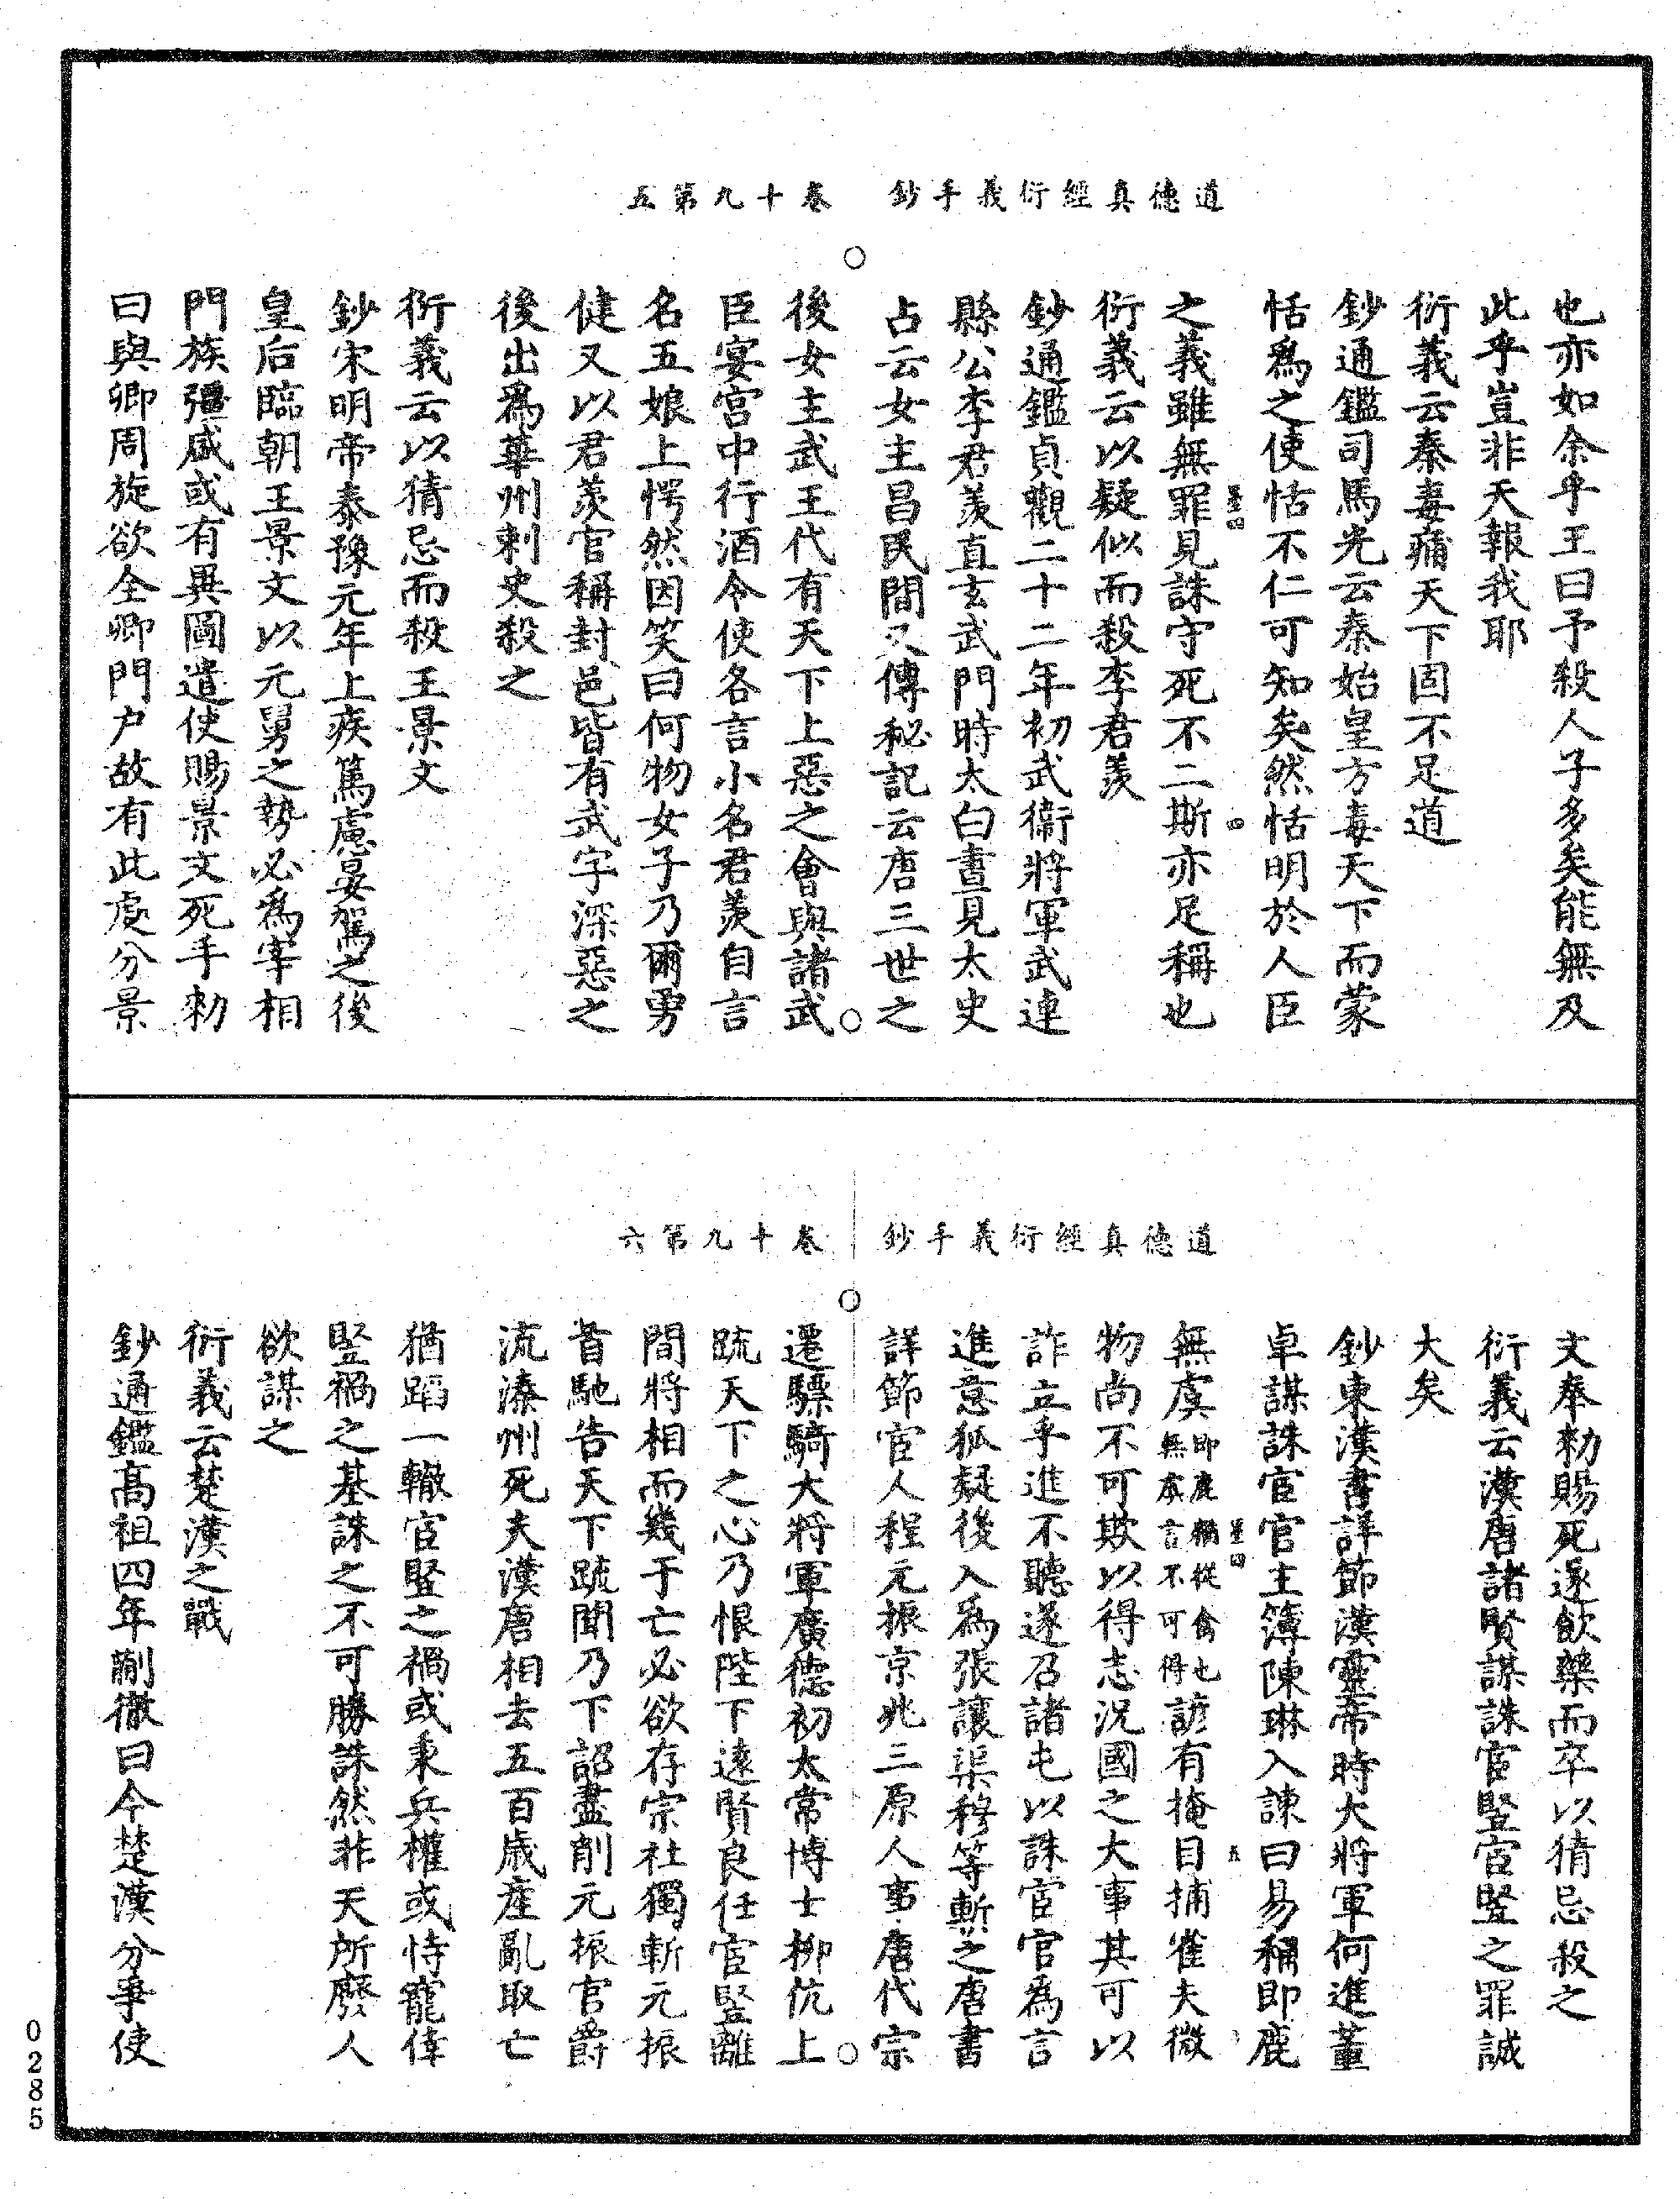 道德真經衍義手鈔　卷十九第五
也亦如余乎王曰予殺人子多矣能無及
此乎豈非天報我耶
衍義云秦毒痡天下固不足道
鈔通鑑司馬光云秦始皇方毒天下而蒙
恬爲之使恬不仁可知矣然恬明於人臣
之義雖無罪見誅守死不二斯亦足稱也
衍義云以疑似而殺李君羨
鈔通鑑貞觀二十二年初武衞將軍武連
縣公李君羨直玄武門時太白晝見太史
占云女主昌民間又傳秘記云唐三世之
後女主武王代有天下上惡之會與諸武
臣宴宮中行酒令使各言小名君羨自言
名五娘上愕然因笑曰何物女子乃爾勇
健又以君羨官稱封邑皆有武字深惡之
後出爲華州刺史殺之
衍義云以猜忌而殺王景文
鈔宋明帝泰豫元年上疾篤慮晏駕之後
皇后臨朝王景文以元舅之勢必爲宰相
門族彊盛或有異圖遣使賜景文死手勑
曰與卿周旋欲全卿門户故有此處分景
道德真經衍義手鈔　卷十九第六
文奉勑賜死遂飲藥而卒以猜忌殺之
衍義云漢唐諸賢謀誅宦竪宦竪之罪誠
大矣
鈔東漢書詳節漢靈帝時大將軍何進董
卓謀誅宦官主簿陳琳入諫曰易稱即鹿
無虞即鹿猶從禽也無虞言不可得諺有掩目捕雀夫微
物尚不可欺以得志況國之大事其可以
詐立乎進不聽遂召諸屯以誅宦官爲言
進意狐疑後入爲張讓渠穆等斬之唐書
詳節宦人程元振京兆三原人事唐代宗
遷驃騎大將軍廣德初太常博士柳伉上
疏天下之心乃恨陛下遠賢良任宦竪離
間將相而幾于亡必欲存宗社獨斬元振
首馳告天下疏聞乃下詔盡削元振官爵
流溱州死夫漢唐相去五百歲產亂取亡
猶蹈一轍宦竪之禍或秉兵權或恃寵倖
竪禍之基誅之不可勝誅然非天所廢人
欲謀之
衍義云楚漢之戰
鈔通鑑髙祖四年蒯徹曰今楚漢分爭使
0285